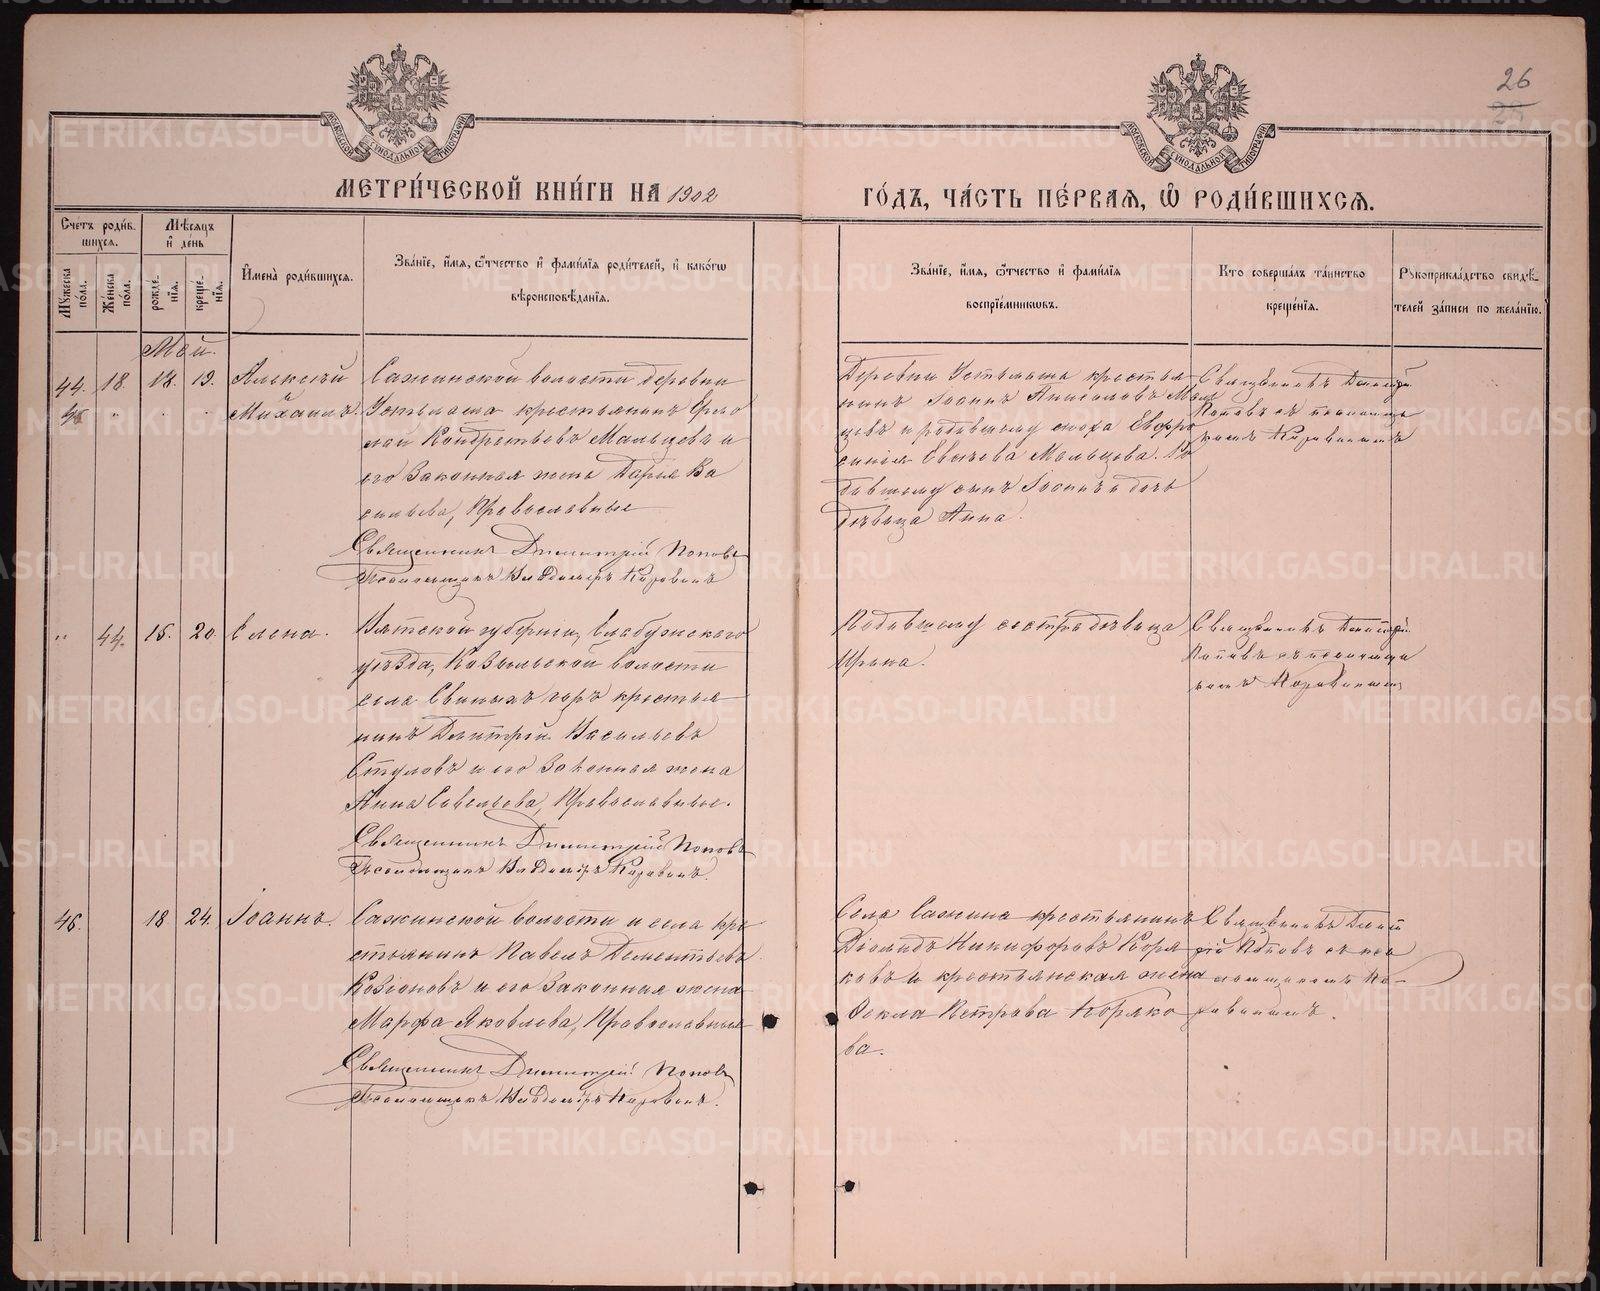 26
МОСКОВСКОЙ СѴНОДАЛЬНОЙ ТИПОГРАФІИ
МОСКОВСКОЙ СѴНОДАЛЬНОЙ ТИПОГРАФІИ
МЕТРИ́ЧЕСКОЙ КНИ́ГИ НА 1902
ГО́ДЪ, ЧА́СТЬ ПЕ́РВАЯ, Ѡ РОДИ́ВШИХСѦ.
Счетъ роди́вшихсѧ.
Мꙋжеска пола.
Же́нска по́ла.
Мѣ́сѧцъ и҆ день
рожде́нїѧ.
креще́нїѧ.
И҆мена̀ роди́вшихсѧ.
Зва́нїе, и҆́мѧ, ѻ҆́тчество и҆ фами́лїѧ роди́телей, и҆ како́гѡ
вѣроисповѣ́данїѧ.
Зва́нїе, и҆́мѧ, ѻ҆́тчество и҆ фами́лїѧ
воспрїе́мниковъ.
Кто соверша́лъ та́инство
креще́нїѧ.
Рꙋкоприкла́дство свидѣ́телей за́писи по жела́нїю.
Май.
44. 18. 18. 19. Алексѣй
45 " Михаилъ.
Сажинской волости деревни
Устьмаша крестьянинъ Ермо
лай Кондратьевъ Мальцевъ и
его законная жена Дарья Ва
сильева, Православные
Священникъ Димитрій Поповъ
Псаломщикъ Владиміръ Коровинъ
Деревни Устьмаша крестья
нинъ Іоаннъ Маль
цевъ и родившему сноха Евфро
синія Мальцева. Ро
дившему сынъ Іоаннъ и дочь
дѣвица Анна.
Священникъ Димитрій
Поповъ съ псаломщи
комъ Коровинымъ
" 44. 15. 20. Елена.
Вятской губерніи, Елабужскаго
уѣзда, Козыльской волости
села Свиныхъ горъ крестья
нинъ Дмитрій Васильевъ
Стуловъ и его законная жена
Анна Савельева, Православные.
Священникъ Димитрій Поповъ
Псаломщикъ Владиміръ Коровинъ.
Родившему сестра дѣвица
Ирина.
Священникъ Дмитрій
Поповъ съ псаломщи
комъ Коровинымъ
46. 18 24. Іоаннъ.
Сажинской волости и села кре
стьянинъ Павелъ Дементьевъ
Козіоновъ и его законная жена
Марфа Яковлева, Православные
Священникъ Димитрій Поповъ
Псаломщикъ Владиміръ Коровинъ.
Села Сажина крестьянинъ
Діомидъ Никифоровъ Коря
ковъ и крестьянская жена
Ѳекла Петрова Коряко
ва.
Священникъ Димит
рій Поповъ съ пса
ломщикомъ Ко-
ровинымъ.
METRIKI.GASO-URAL.RU